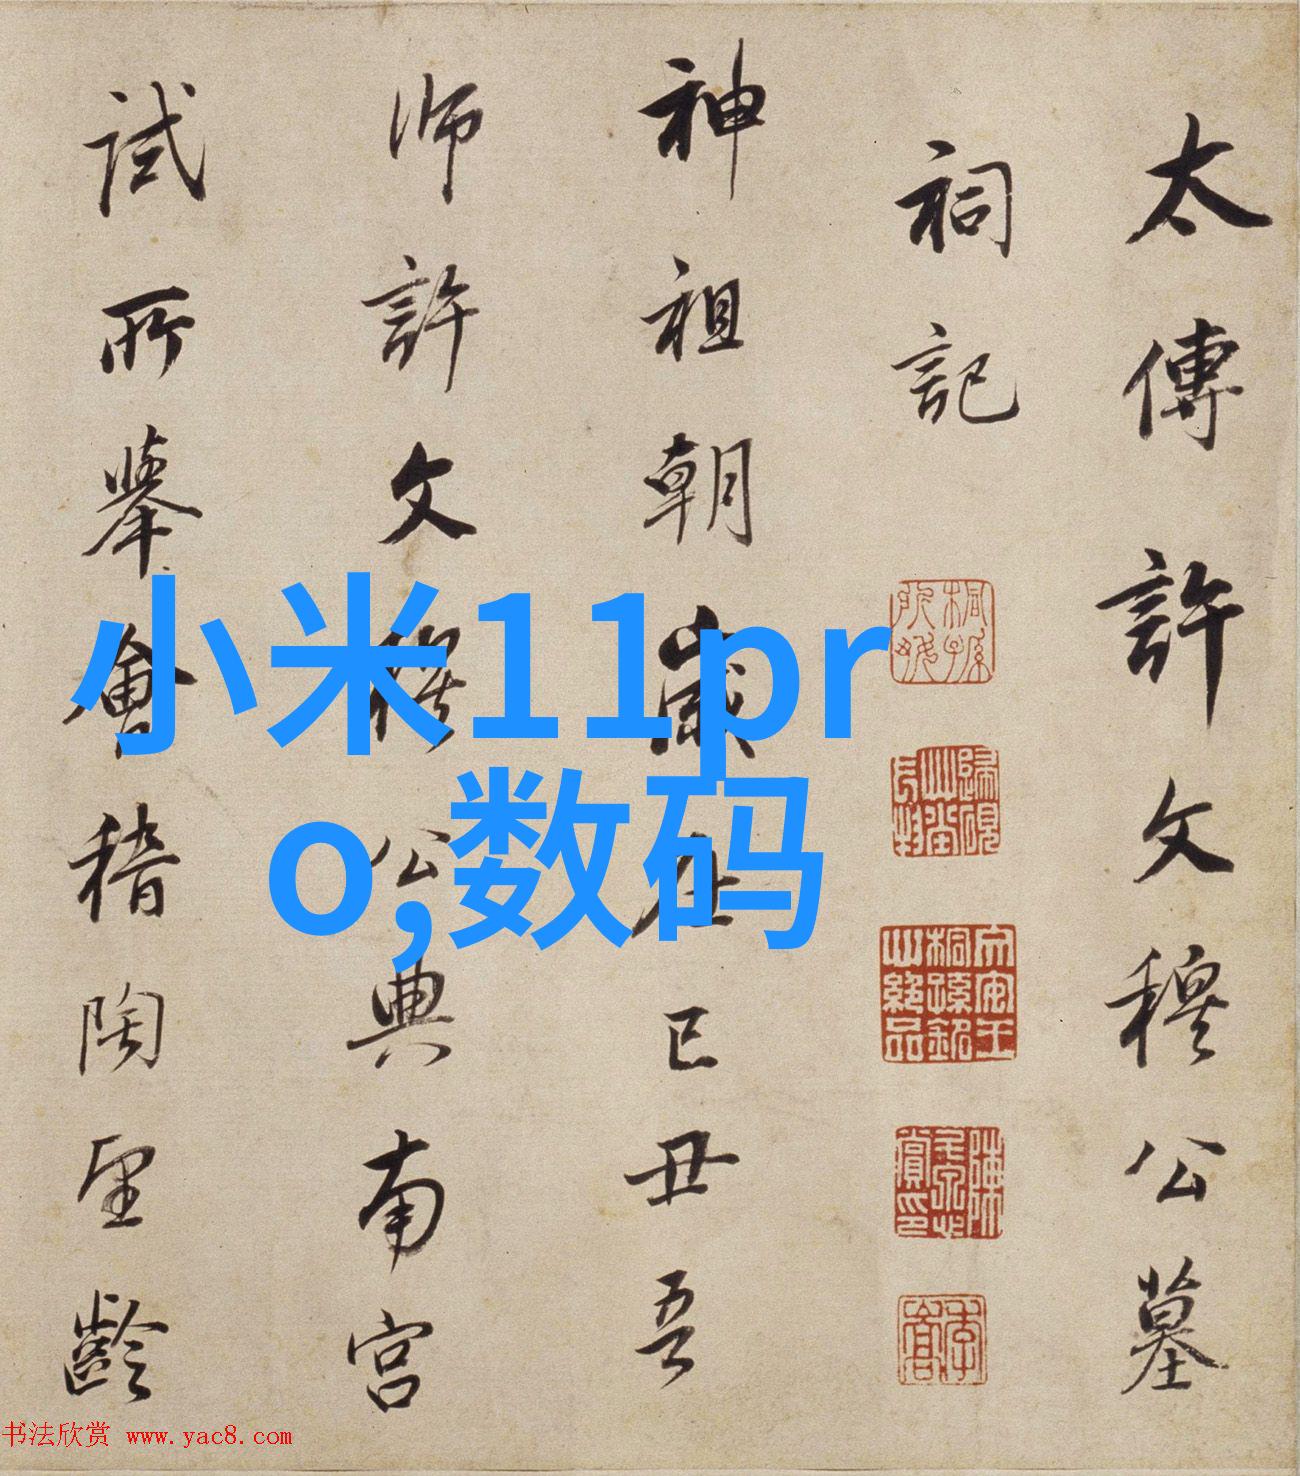 太傅許文穆公墓
祠記
神祖朝歲在已丑吾
師許文穆公典南宮
試所舉會稽陶望齡
小米11pr
o,数码
书法欣赏 www.yac8.com